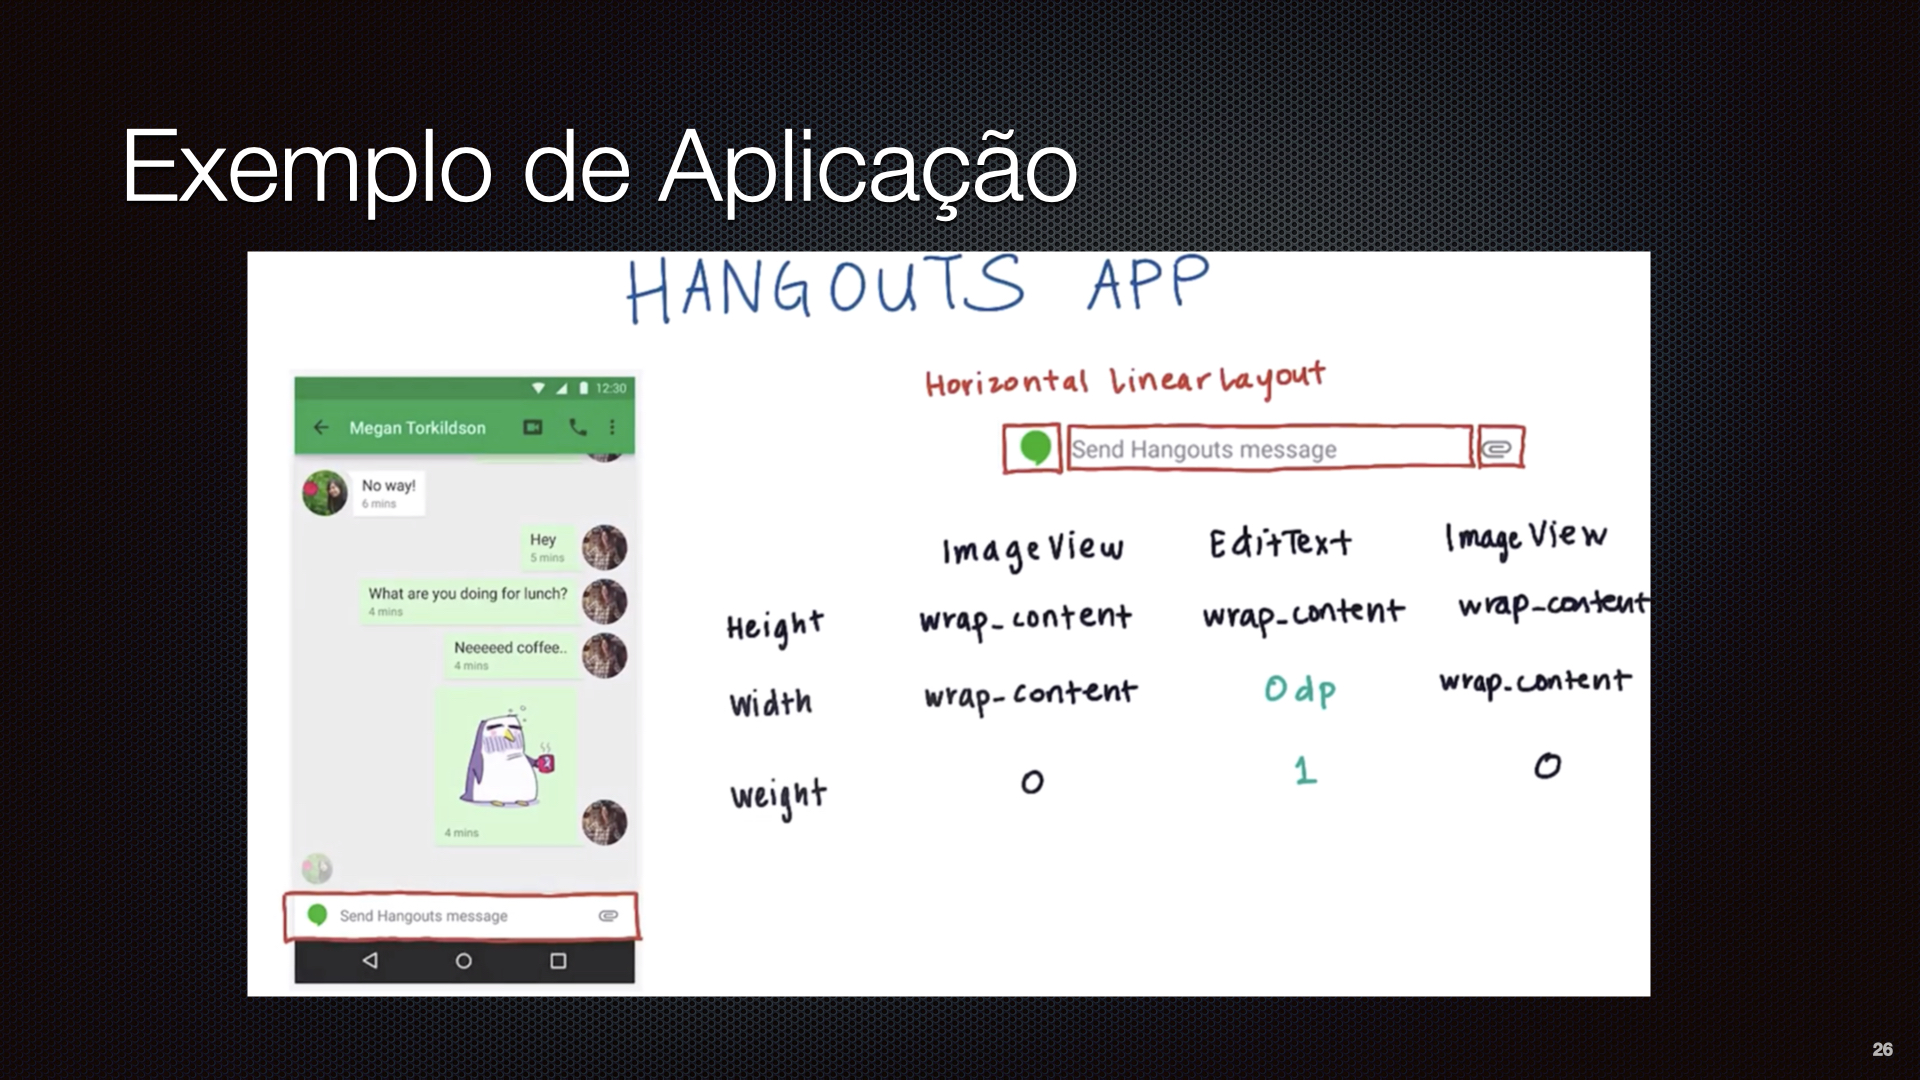 Exemplo de Aplicação
HANGOUTS APP
12:30
Megan Torkildson
No way!
6 mins
Hey
5 mins
What are you doing for lunch?
4 mins
Neeeeed coffee..
4 mins
4 mins
Send Hangouts message
Horizontal LinearLayout
Send Hangouts message
ImageView EditText ImageView
Height wrap_content wrap_content wrap_content
Width wrap_content 0dp wrap_content
Weight 0 1 0
26